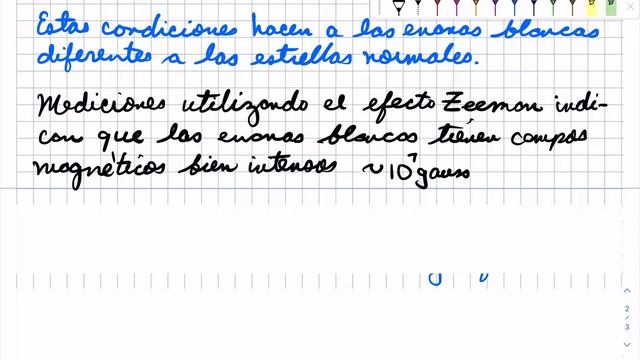 Estas condiciones hacen a las enanas blancas
diferentes a las estrellas normales.
Mediciones utilizando el efecto Zeeman indi-
can que las enanas blancas tienen campos
magnéticos bien intensos ~10⁷ gauss
2
/
3